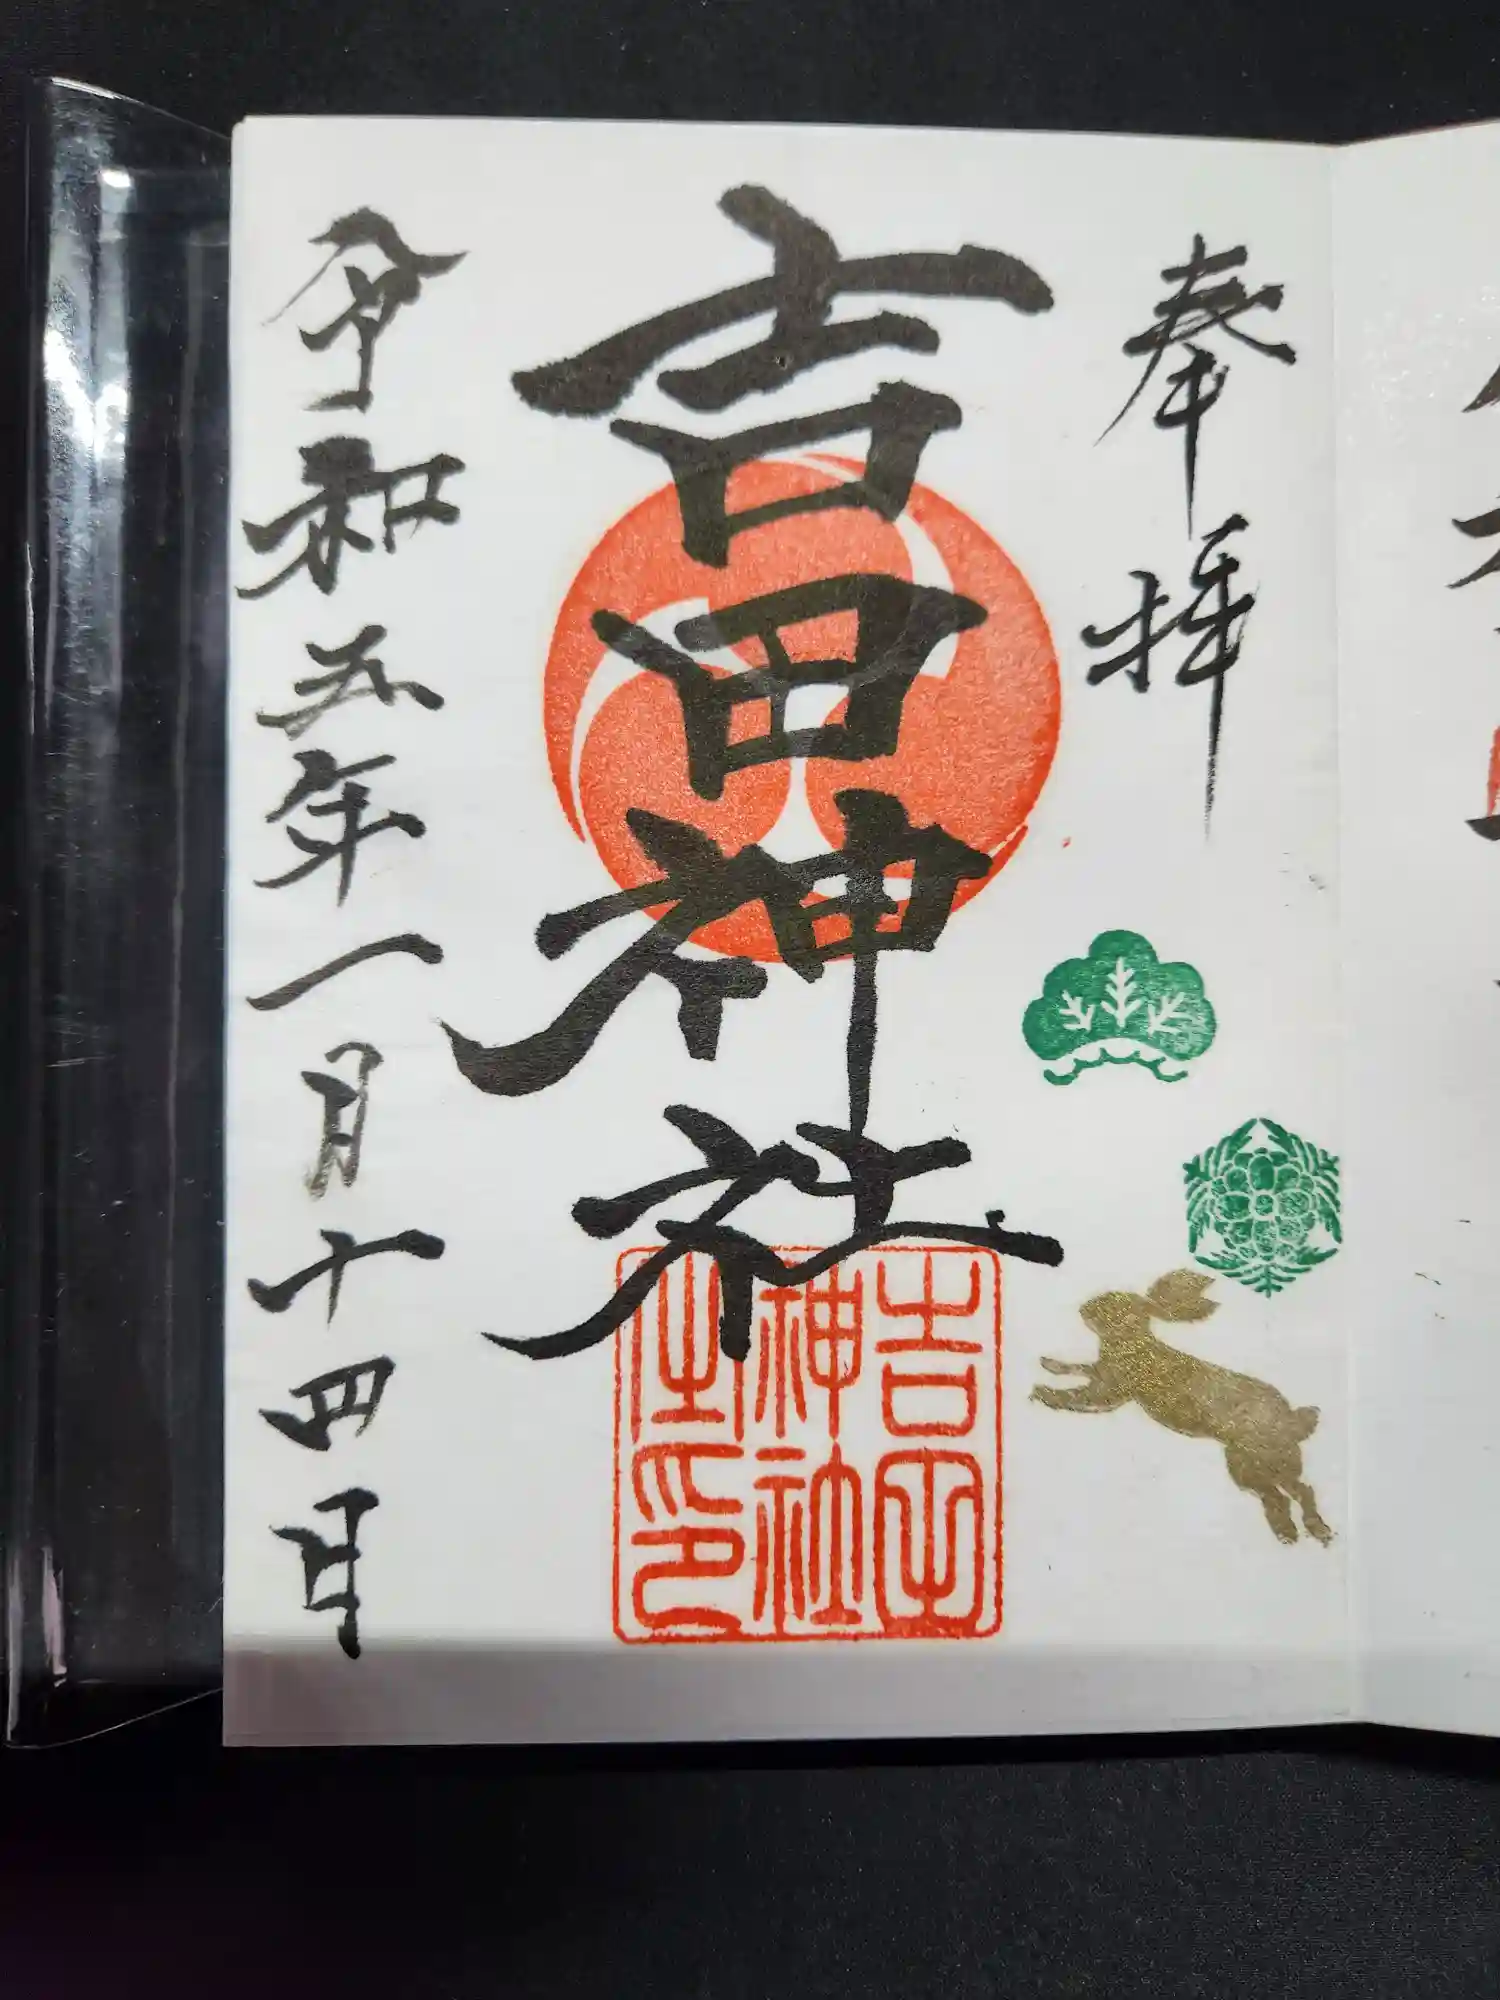 奉拝
吉田神社
令和五年一月十四日
吉
神社
印